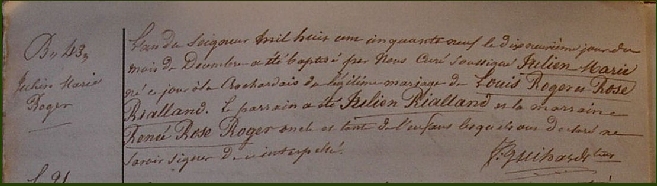 B. 43
Julien Marie
Roger
L'an du Seigneur mil huit cent cinquante neuf le dix neuvième jour du
mois de Décembre a été baptisé par Nous Curé soussigné Julien Marie
né ce jour à la Rochardais du légitime mariage de Louis Roger et Rose
Rialland. Le parrain a été Julien Rialland et la marraine
Renée Rose Roger oncle et tante de l'enfant lesquels ont déclaré ne
savoir signer de ce interpellé.